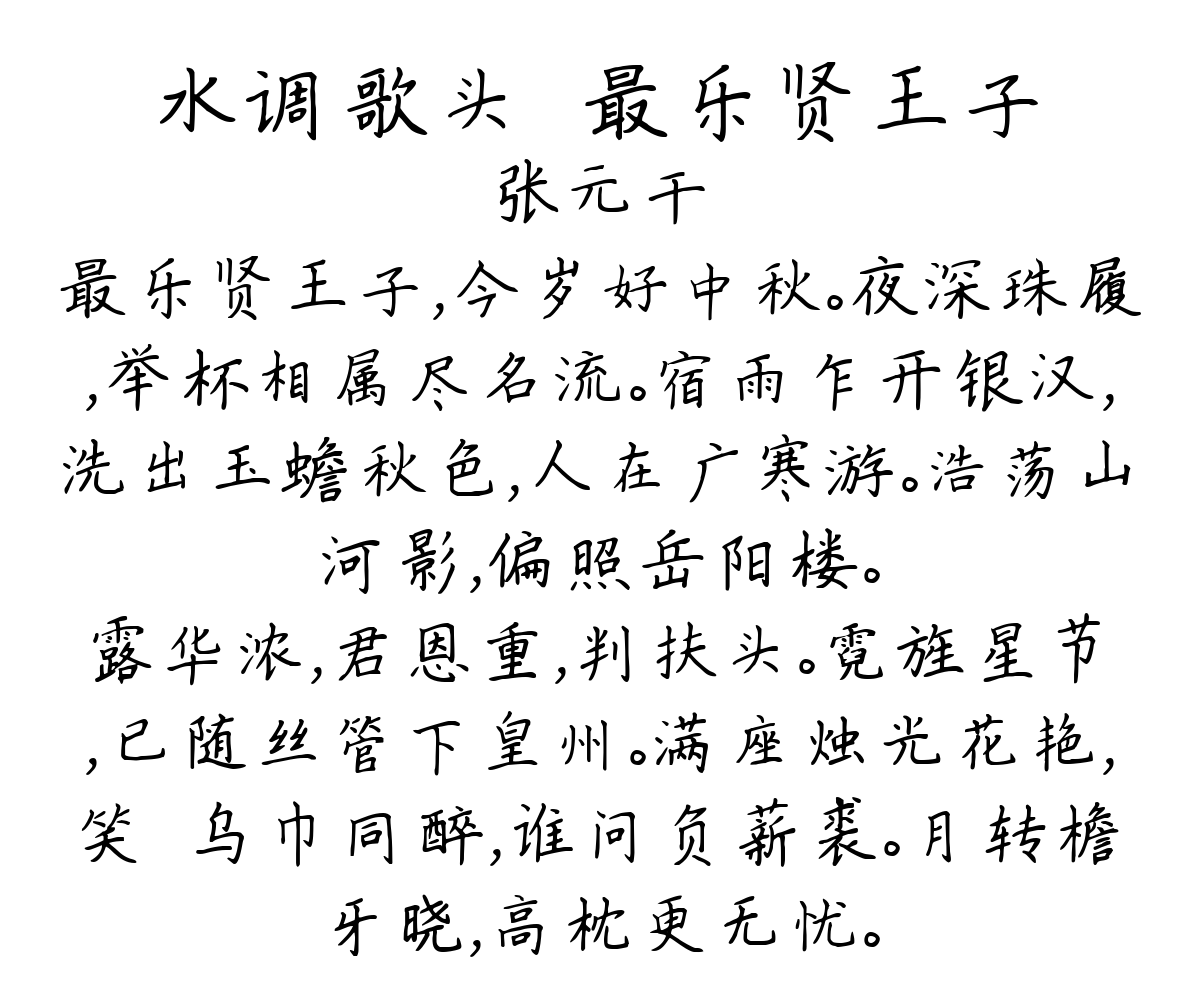 水调歌头 最乐贤王子
张元干
最乐贤王子,今岁好中秋。夜深珠履
,举杯相属尽名流。宿雨乍开银汉,
洗出玉蟾秋色,人在广寒游。浩荡山
河影,偏照岳阳楼。
露华浓,君恩重,判扶头。霓旌星节
,已随丝管下皇州。满座烛光花艳,
笑 乌巾同醉,谁问负薪裘。月转檐
牙晓,高枕更无忧。